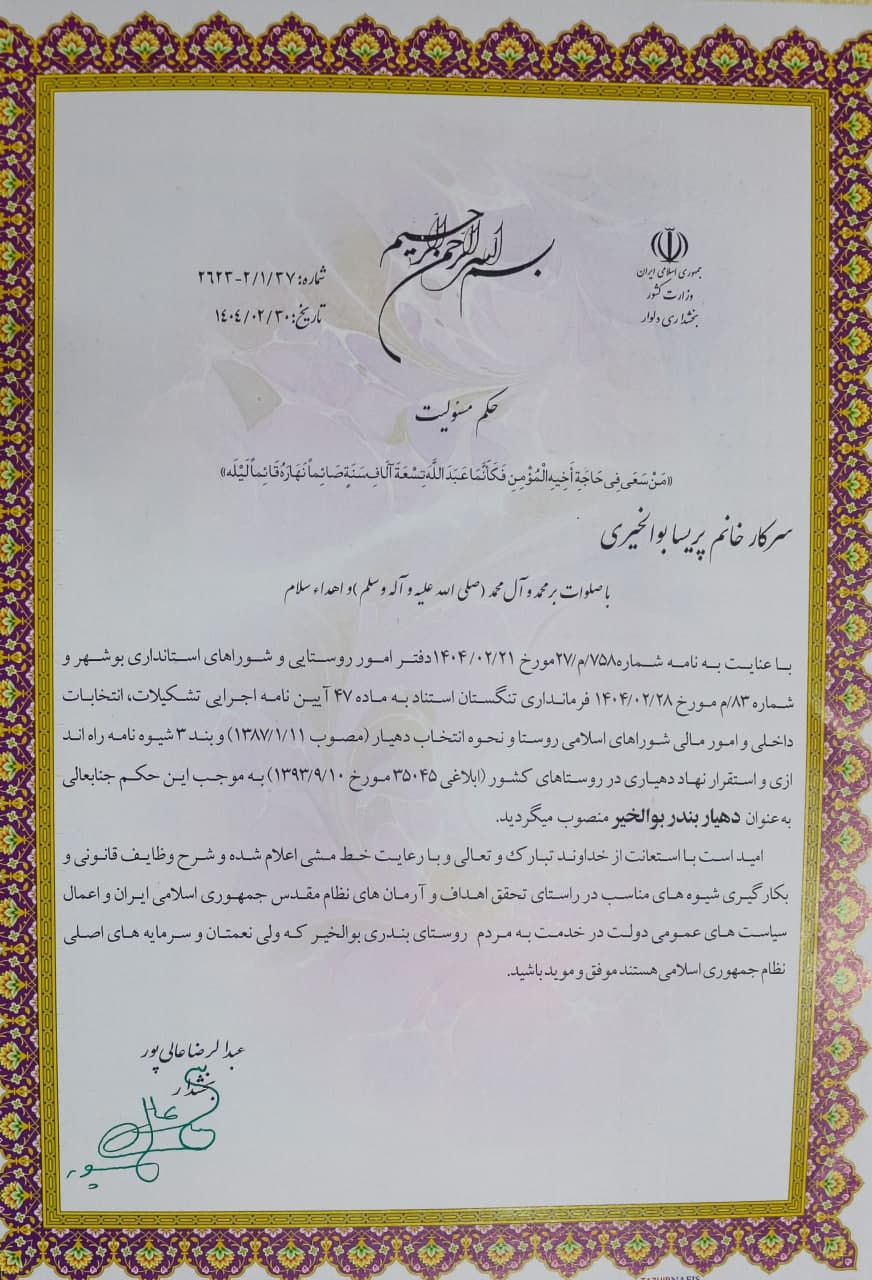 بسم الله الرحمن الرحیم
جمهوری اسلامی ایران
وزارت کشور
بخشداری دلوار
شماره: ۲۶۲۳-۲/۱/۳۷
تاریخ: ۱۴۰۴/۰۲/۳۰
حکم مسئولیت
«مَنْ سَعَى فِي حَاجَةِ أَخِيهِ الْمُؤْمِنِ فَكَأَنَّمَا عَبَدَ اللَّهَ تِسْعَةَ آلَافِ سَنَةٍ صَائِماً نَهَارَهُ قَائِماً لَيْلَه»
سرکار خانم پریسا بوالخیری
با صلوات بر محمد و آل محمد (صلی الله علیه و آله وسلم) و اهداء سلام
با عنایت به نامه شماره ۲۷/م/۷۵۸ مورخ ۱۴۰۴/۰۲/۲۱ دفتر امور روستایی و شوراهای استانداری بوشهر و
شماره ۸۳/م مورخ ۱۴۰۴/۰۲/۲۸ فرمانداری تنگستان استناد به ماده ۴۷ آیین نامه اجرایی تشکیلات، انتخابات
داخلی و امور مالی شوراهای اسلامی روستا و نحوه انتخاب دهیار (مصوب ۱۳۸۷/۱/۱۱) و بند ۳ شیوه نامه راه اند
ازی و استقرار نهاد دهیاری در روستاهای کشور (ابلاغی ۳۵۰۴۵ مورخ ۱۳۹۳/۹/۱۰) به موجب این حکم جنابعالی
به عنوان دهیار بندر بوالخیر منصوب میگردید.
امید است با استعانت از خداوند تبارک و تعالی و با رعایت خط مشی اعلام شده و شرح وظایف قانونی و
بکارگیری شیوه های مناسب در راستای تحقق اهداف و آرمان های نظام مقدس جمهوری اسلامی ایران و اعمال
سیاست های عمومی دولت در خدمت به مردم روستای بندری بوالخیر که ولی نعمتان و سرمایه های اصلی
نظام جمهوری اسلامی هستند موفق و موید باشید.
عبدالرضا عالی پور
بخشدار